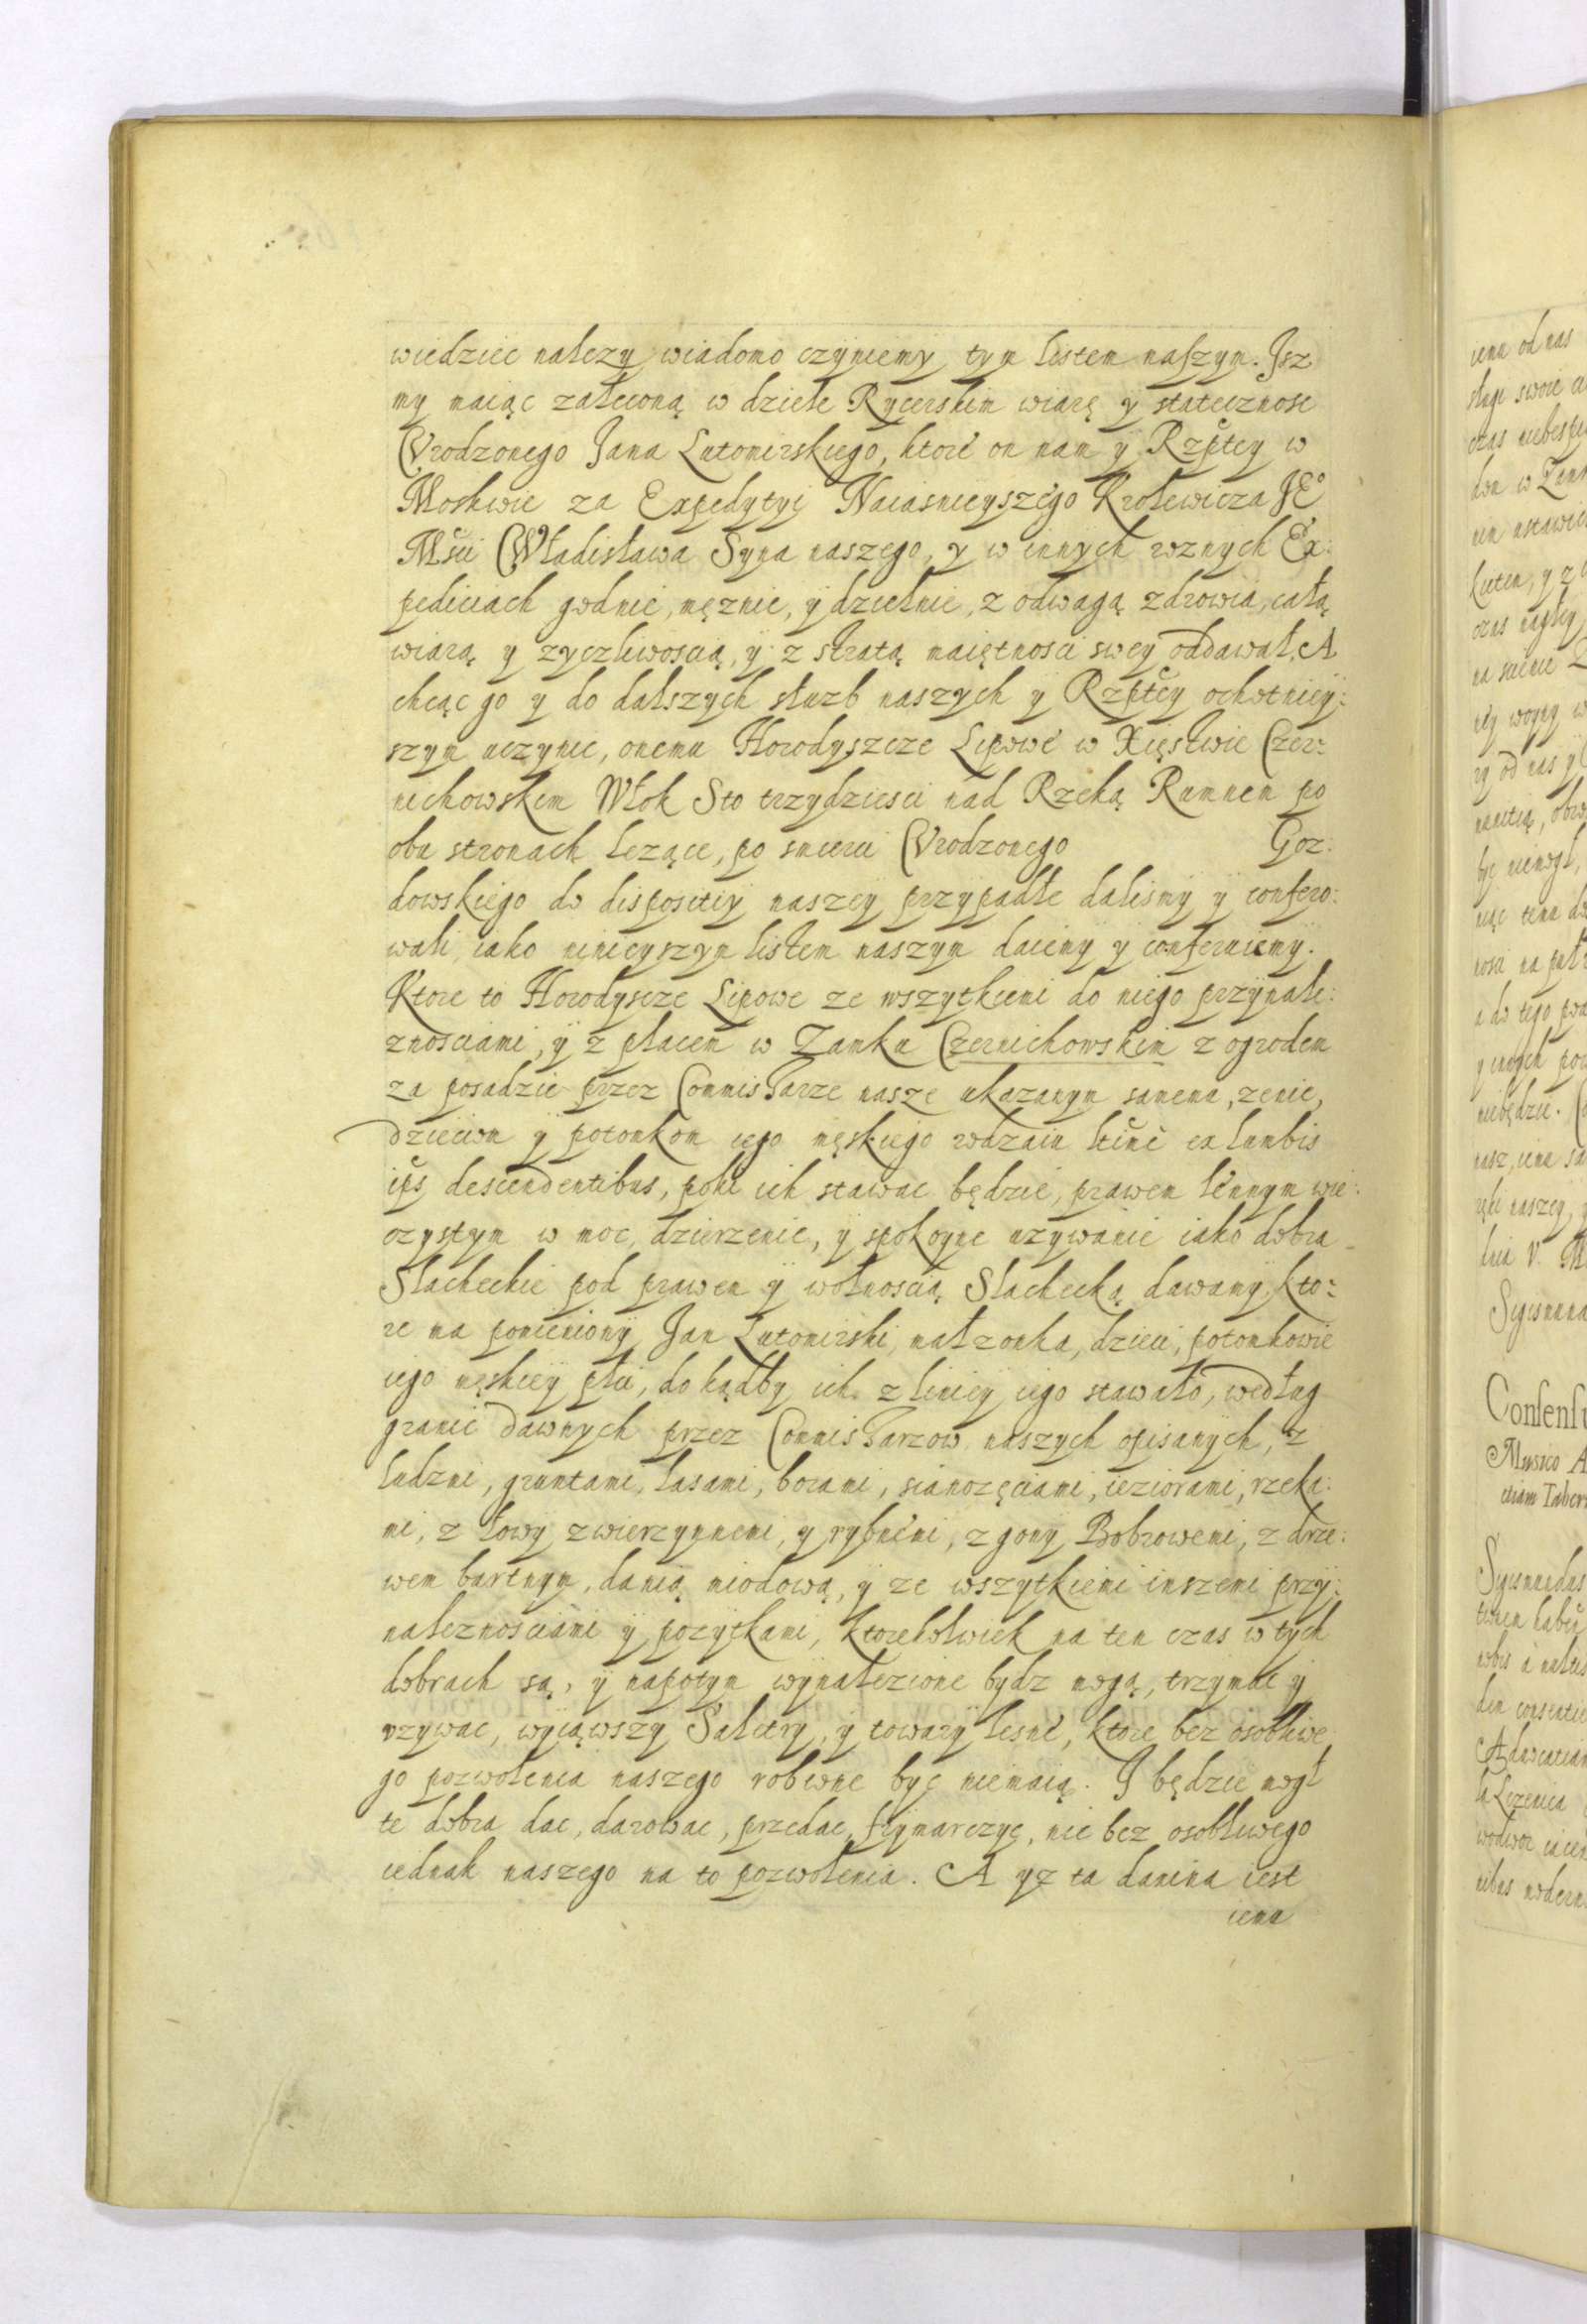 wiedziec nalezy wiadomo czyniemy tym listem naszym. Jsz
my maiąc zaleconą w dziele Rycerskim wiarę y statecznosc
Vrodzonego Jana Lutomirskiego, ktore on nam y Rzptey w
Moskwie za Expedytyi Naiasnieyszego Krolewicza JE⁰
Msci Władisława Syna naszego, y w innych roznych Ex:
pediciach godnie, męznie, y dzielnie, z odwagą zdrowia, całą
wiarą y zyczliwoscią, y z stratą maiętnosci swey oddawał, A
chcąc go y do dalszych słuzb naszych y Rzptey ochotniey:
szym uczynic, onemu Horodyszcze Lipowe w Xięstwie Czer:
nichowskim Włok Sto trzydziesci nad Rzeką Rumnem po
obu stronach lezące, po smierci Vrodzonego Goz:
dowskiego do dispositiy naszey przypadłe dalismy y confero:
wali iako ninieyszym listem naszym daiemy y conferuiemy.
Ktore to Horodyscze Lipowe ze wszytkiemi do niego przynale:
znosciami, y z placem w Zamku Czernichowskim z ogrodem
za posadzie przez Commissarze nasze ukazanym samemu, zenie,
dzieciom y potomkom iego męskiego rodzaiu ltime ex lumbis
ips descendentibus, poki ich stawac będzie, prawem lennym wie:
czystym w moc, dzierzenie, y spokoyne uzywanie iako dobra
Slacheckie pod prawem y wolnoscią Slachecką dawamy. Kto:
re ma pomieniony Jan Lutomirski, małzonka, dzieci, potomkowie
iego męskiey płci, do kądby ich z liniey iego stawało, według
granic dawnych przez Commissarzow naszych opisanych, z
ludzmi, gruntami, lasami, borami, sianozęciami, ieziorami, rzeka:
mi, z łowy zwierzynnemi, y rybnemi, z gony Bobrowemi, z drze:
wem bartnym, danią miodową, y ze wszytkiemi inszemi przy:
naleznosciami y pozytkami, ktorekolwiek na ten czas w tych
dobrach są, y napotym wynalezione bydz mogą, trzymac y
vzywac, wyiąwszy Saletry, y towary lesne, ktore bez osobliwe
go pozwolenia naszego robione byc niemaią. J będzie mogł
te dobra dac, darowac, przedac, frymarczyc, nie bez osobliwego
iednak naszego na to pozwolenia. A yz ta danina iest
iemu